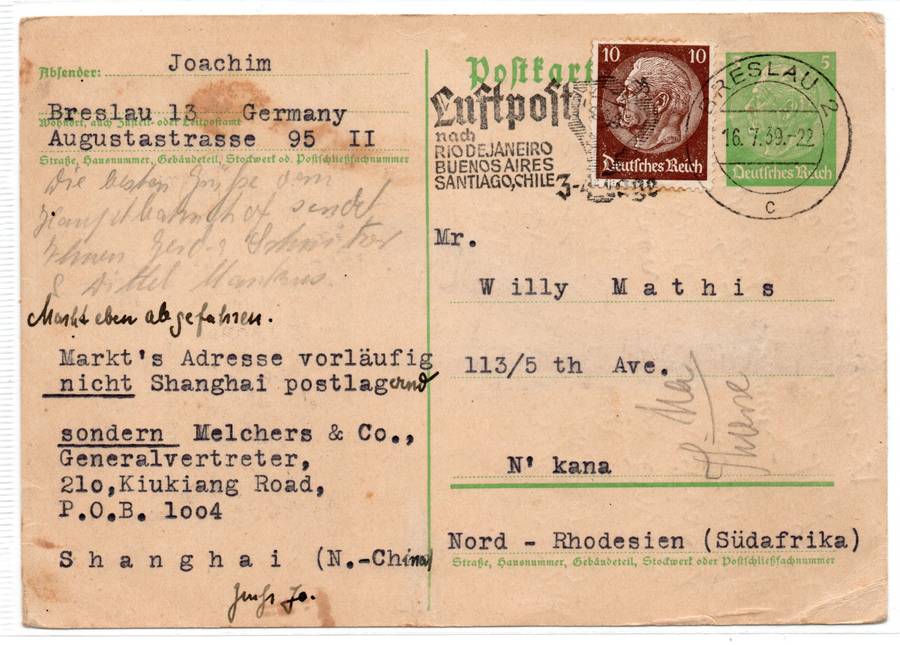 Absender: Joachim
Breslau 13 Germany
Wohnort, auch Zustell- oder Leitpostamt
Augustastrasse 95 II
Straße, Hausnummer, Gebäudeteil, Stockwerk od. Postschließfachnummer
Die besten Grüße vom
Hauptbahnhof sendet
Ihnen
Markt eben abgefahren.
Markt's Adresse vorläufig
nicht Shanghai postlagernd
sondern Melchers & Co.,
Generalvertreter,
21o,Kiukiang Road,
P.O.B. 1oo4
S h a n g h a i (N.-China)
Jo.
Postkarte
Luftpost
nach
RIO DE JANEIRO
BUENOS AIRES
SANTIAGO, CHILE
10 10
Deutsches Reich
BRESLAU 2
16. 7. 39.-22
c
5
Deutsches Reich
Mr.
Willy M a t h i s
113/5 th Ave.
N' kana
Nord - Rhodesien (Südafrika)
Straße, Hausnummer, Gebäudeteil, Stockwerk oder Postschließfachnummer